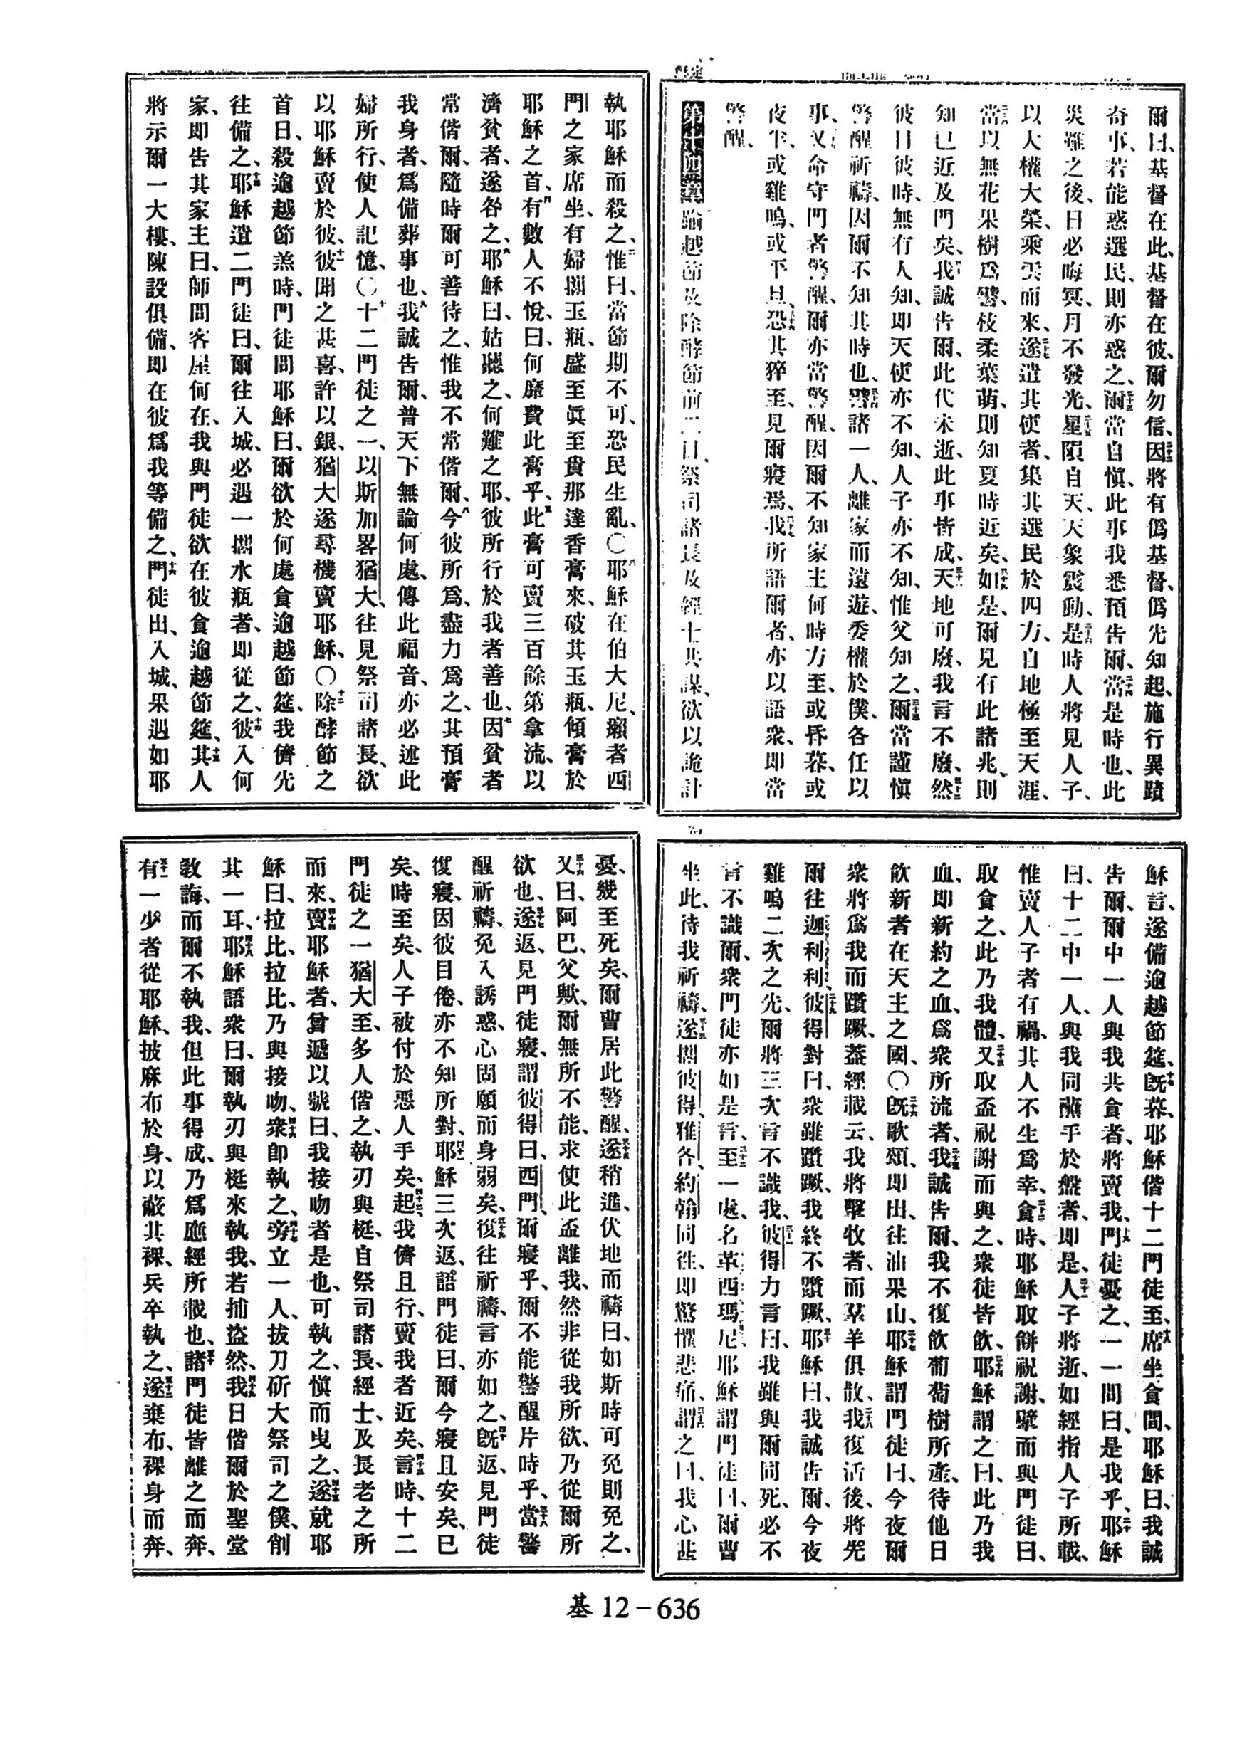 爾曰、基督在此、基督在彼、爾勿信、因將有僞基督、僞先知起、施行異蹟
奇事、若能惑選民、則亦惑之、爾當自慎、此事我悉預告爾、當是時也、此
災難之後、日必晦冥、月不發光、星隕自天、天象震動、是時人將見人子、
以大權大榮、乘雲而來、遂遣其使者、集其選民於四方、自地極至天涯、
當以無花果樹爲譬、枝柔葉萌、則知夏時近矣、如是、爾見有此諸兆、則
知已近及門矣、我誠告爾、此代未逝、此事皆成、天地可廢、我言不廢、然
彼日彼時、無有人知、即天使亦不知、人子亦不知、惟父知之、爾當謹慎
警醒祈禱、因爾不知其時也、譬諸一人、離家而遠遊、委權於僕、各任以
事、又命守門者警醒、爾亦當警醒、因爾不知家主何時方至、或昏暮、或
夜半、或雞鳴、或平旦、恐其猝至、見爾寢焉、我所語爾者、亦以語衆、即當
警醒、
第十四章 逾越節及除酵節前二日、祭司諸長及經士共謀、欲以詭計
執耶穌而殺之、惟曰、當節期不可、恐民生亂、〇耶穌在伯大尼、癩者西
門之家席坐、有婦攜玉瓶、盛至眞至貴那達香膏來、破其玉瓶、傾膏於
耶穌之首、有數人不悅曰、何靡費此膏乎、此膏可賣三百餘第拿流、以
濟貧者、遂咎之、耶穌曰、姑聽之、何難之耶、彼所行於我者善也、因貧者
常偕爾、隨時爾可善待之、惟我不常偕爾、今彼所爲、盡力爲之、其預膏
我身者、爲備葬事也、我誠告爾、普天下無論何處、傳此福音、亦必述此
婦所行、使人記憶、〇十二門徒之一、以斯加畧猶大、往見祭司諸長、欲
以耶穌賣於彼、彼聞之甚喜、許以銀、猶大遂尋機賣耶穌、〇除酵節之
首日、殺逾越節羔時、門徒問耶穌曰、爾欲於何處食逾越節筵、我儕先
往備之、耶穌遣二門徒曰、爾往入城、必遇一攜水瓶者、即從之、彼入何
家、即告其家主曰、師問客屋何在、我與門徒欲在彼食逾越節筵、其人
將示爾一大樓、陳設俱備、即在彼爲我等備之、門徒出、入城、果遇如耶
穌言、遂備逾越節筵、旣暮、耶穌偕十二門徒至、席坐食間、耶穌曰、我誠
告爾、爾中一人與我共食者、將賣我、門徒憂之、一一問曰、是我乎、耶穌
曰、十二中一人、與我同蘸手於盤者、即是、人子將逝、如經指人子所載、
惟賣人子者有禍、其人不生爲幸、食時、耶穌取餅祝謝、擘而與門徒曰、
取食之、此乃我體、又取盃祝謝而與之、衆徒皆飲、耶穌謂之曰、此乃我
血、即新約之血、爲衆所流者、我誠告爾、我不復飲葡萄樹所產、待他日
飲新者在天主之國、〇旣歌頌、即出、往油果山、耶穌謂門徒曰、今夜爾
衆將爲我而躓蹶、蓋經載云、我將擊牧者、而羣羊俱散、我復活後、將先
爾往迦利利、彼得對曰、衆雖躓蹶、我終不躓蹶、耶穌曰、我誠告爾、今夜
雞鳴二次之先、爾將三次言不識我、彼得力言曰、我雖與爾同死、必不
言不識爾、衆門徒亦如是言、至一處、名革西瑪尼、耶穌謂門徒曰、爾曹
坐此、待我祈禱、遂攜彼得、雅各、約翰同往、即驚懼悲痛、謂之曰、我心甚
憂、幾至死矣、爾曹居此警醒、遂稍進、伏地而禱曰、如斯時可免則免之、
又曰、阿巴、父歟、爾無所不能、求使此盃離我、然非從我所欲、乃從爾所
欲也、遂返、見門徒寢、謂彼得曰、西門、爾寢乎、爾不能警醒片時乎、當警
醒祈禱、免入誘惑、心固願而身弱矣、復往祈禱、言亦如之、旣返、見門徒
復寢、因彼目倦、亦不知所對、耶穌三次返、語門徒曰、爾今寢且安矣、已
矣、時至矣、人子被付於惡人手矣、起、我儕且行、賣我者近矣、言時、十二
門徒之一猶大至、多人偕之、執刃與梃、自祭司諸長、經士、及長老之所
而來、賣耶穌者、曾遞以號曰、我接吻者是也、可執之、慎而曳之、遂就耶
穌曰、拉比、拉比、乃與接吻、衆即執之、旁立一人、拔刀斫大祭司之僕、削
其一耳、耶穌語衆曰、爾執刃與梃來執我、若捕盜然、我日偕爾於聖堂
敎誨、而爾不執我、但此事得成、乃爲應經所載也、諸門徒皆離之而奔、
有一少者從耶穌、披麻布於身、以蔽其裸、兵卒執之、遂棄布、裸身而奔、
基12-636